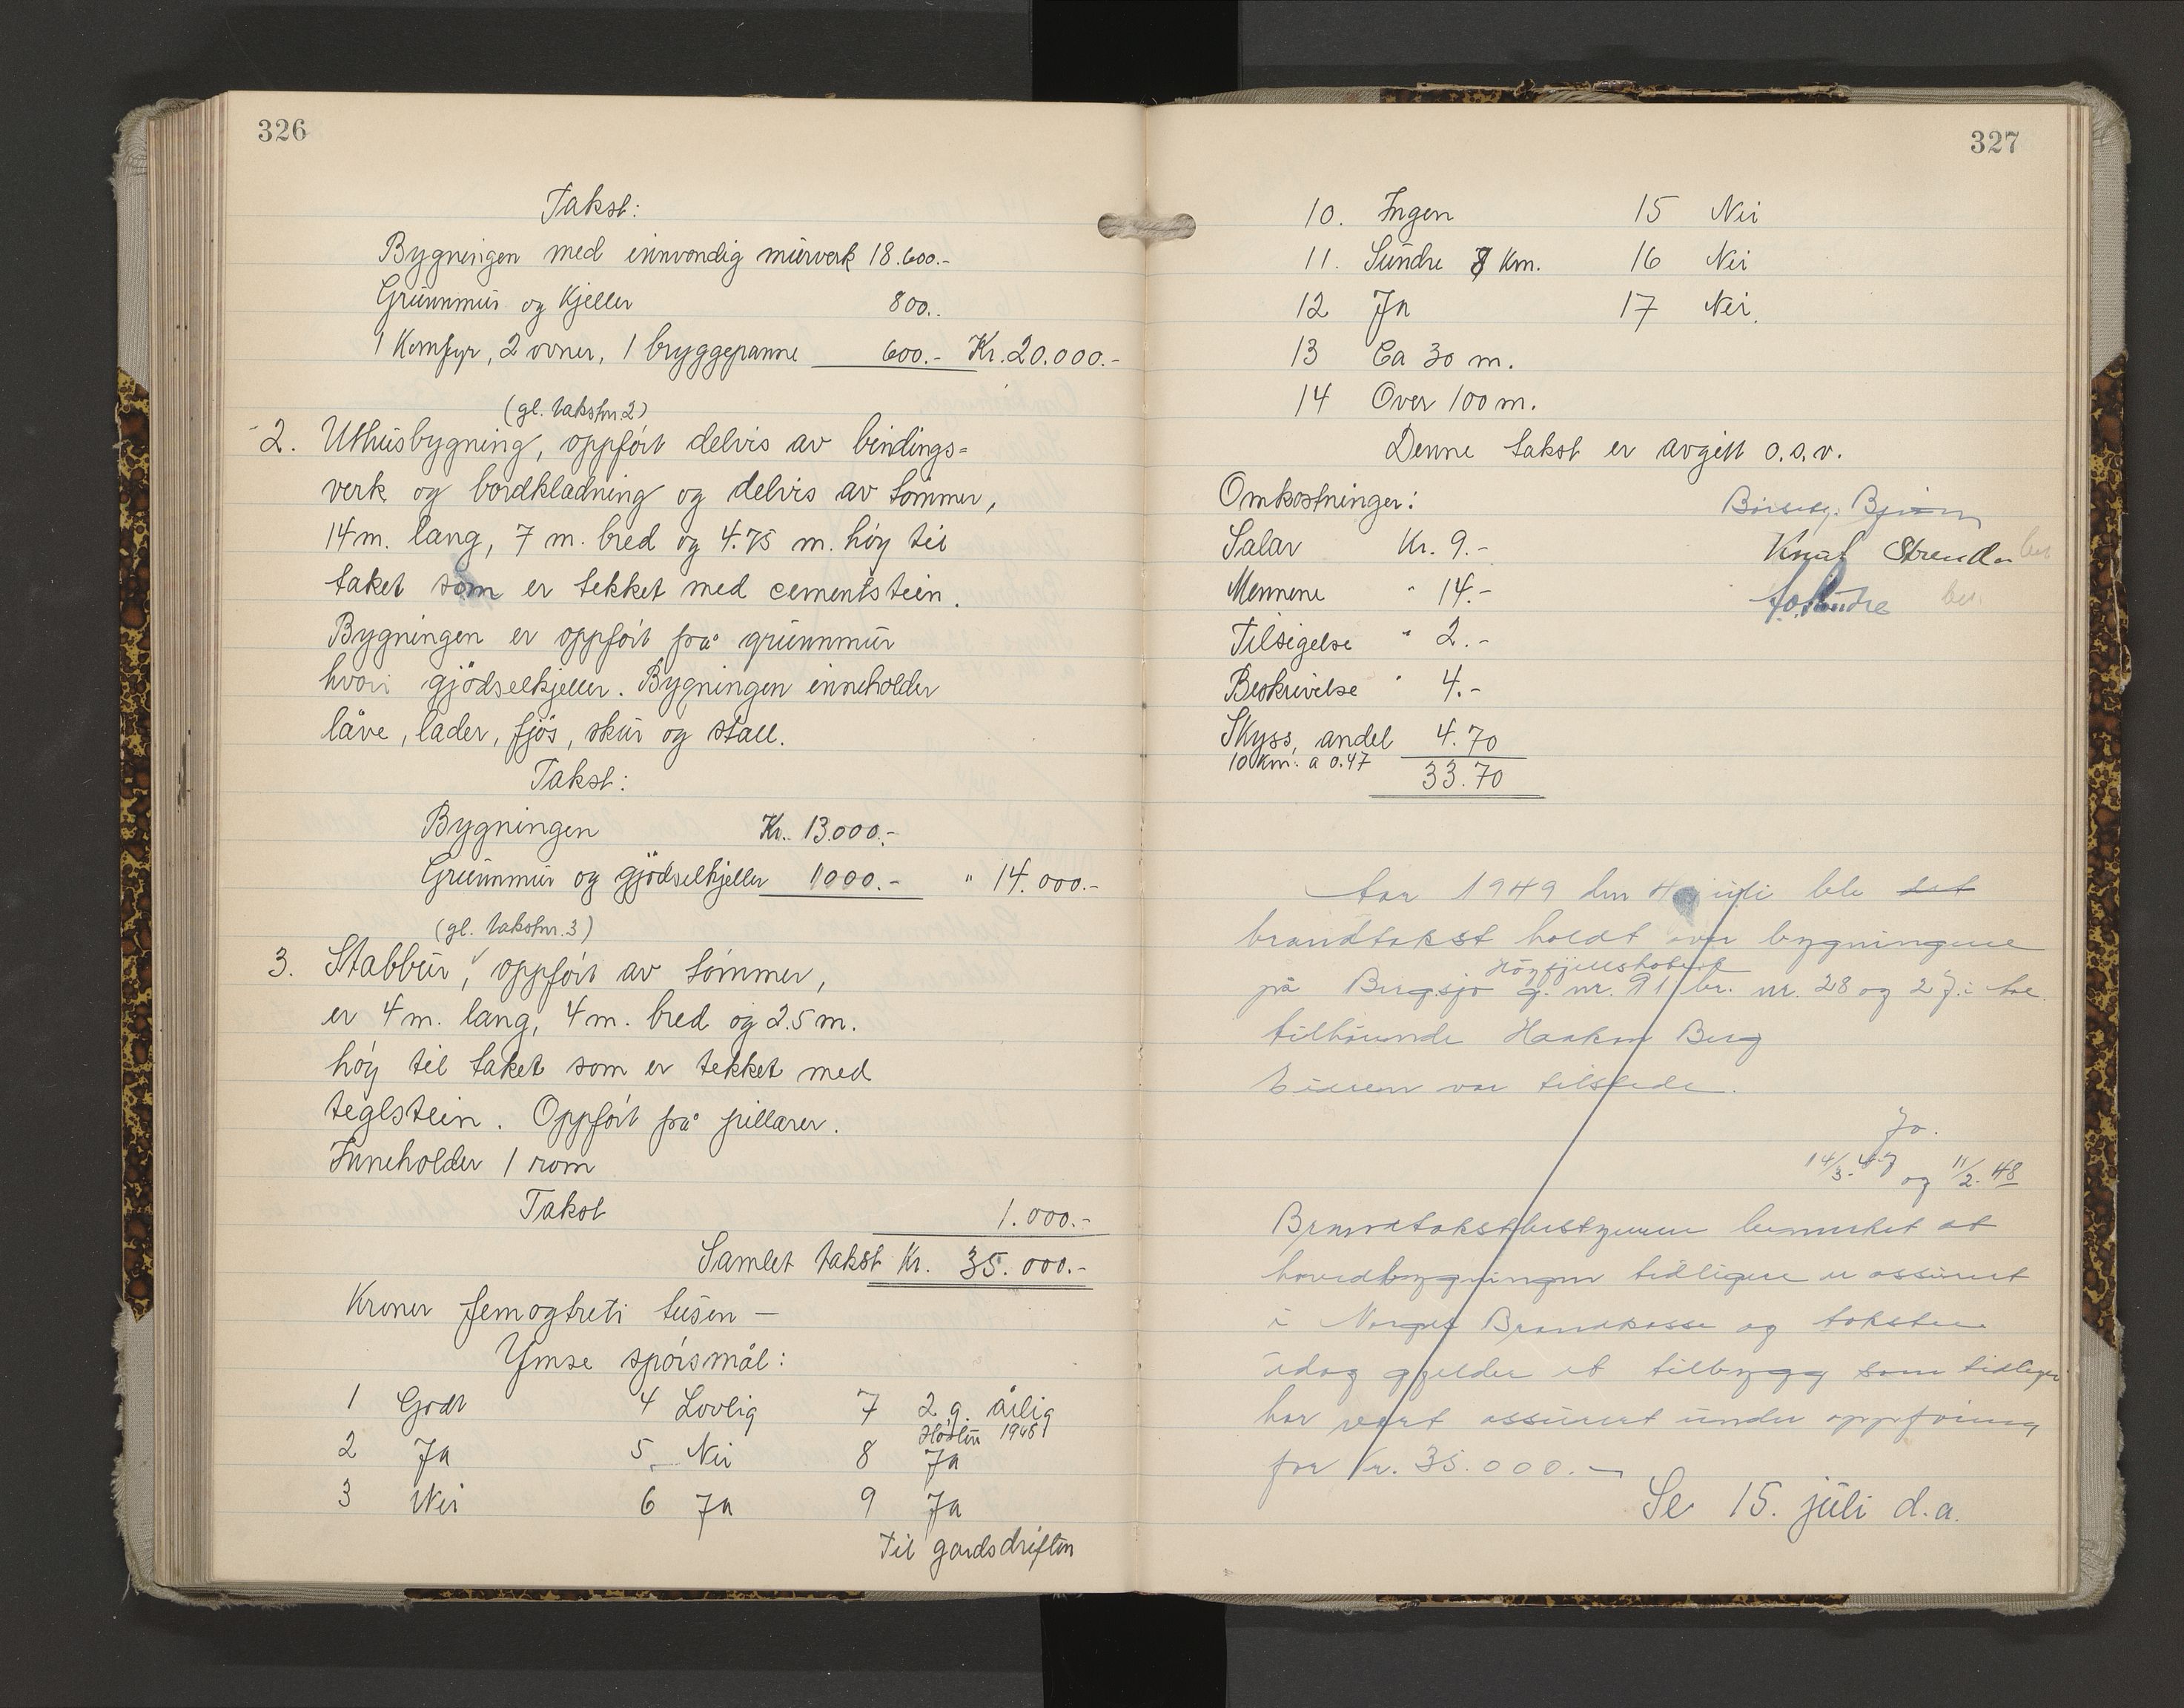 326
Takst:
Bygningen med innvendig murverk 18.600.-
Grunnmur og Kjeller 800..
1 Komfyr, 2 ovner, 1 bryggepanne 600.- Kr. 20.000.-
(gl. takstnr. 2)
2. Uthusbygning, oppført delvis av bindings=
verk og bordkladning og delvis av tømmer,
14 m. lang, 7 m. bred og 4.75 m. høy til
taket som er tekket med cementstein.
Bygningen er oppført på grunnmur
hvori gjødselkjeller. Bygningen inneholder
låve, lader, fjøs, skur og stall.
Takst:
Bygningen Kr. 13.000.-
Grunnmur og gjødselkjeller 1000.- " 14.000.-
(gl. takstnr. 3)
3. Stabbur, oppført av tømmer,
er 4 m. lang, 4 m. bred og 2.5 m.
høy til taket som er tekket med
teglstein. Oppført på pillarer.
Inneholder 1 rom
Takst 1.000.-
Samlet takst Kr. 35.000.-
Kroner femogtreti tusen —
Ymse spørsmål:
1 Godt 4 Lovlig 7 2 g. årlig
Høsten 1948
2 Ja 5 Nei 8 Ja
3 Nei 6 Ja 9 Ja
Til gardsdriften
327
10. Ingen 15 Nei
11. Sundre 8 Km. 16 Nei
12 Ja 17 Nei.
13 Ca 30 m.
14 Over 100 m.
Denne takst er avgitt o.s.v.
Omkostninger:
Salar Kr. 9.-
Knut Strand
Mennene " 14.-
Tilsigelse " 2.-
Beskrivelse " 4.-
Skyss, andel 4.70
10 Km. a 0.47
33.70
Aar 1949 den 4 juli ble tat
brandtakst holdt over bygningene
Høyfjellshotell
på Bergsjø g. nr. 91 br. nr. 28 og 27 i
tilhørende Haakon Berg
Eieren var tilstede.
Jo.
14/3-47 og 11/2-48
Branntakstbestyreren bemerket at
hovedbygningen tidligere er assurert
i Norges Brannkasse og taksten
idag gjelder et tilbygg som tidligere
har vært assurert under oppføring
for Kr. 35.000.-
Se 15. juli d.a.